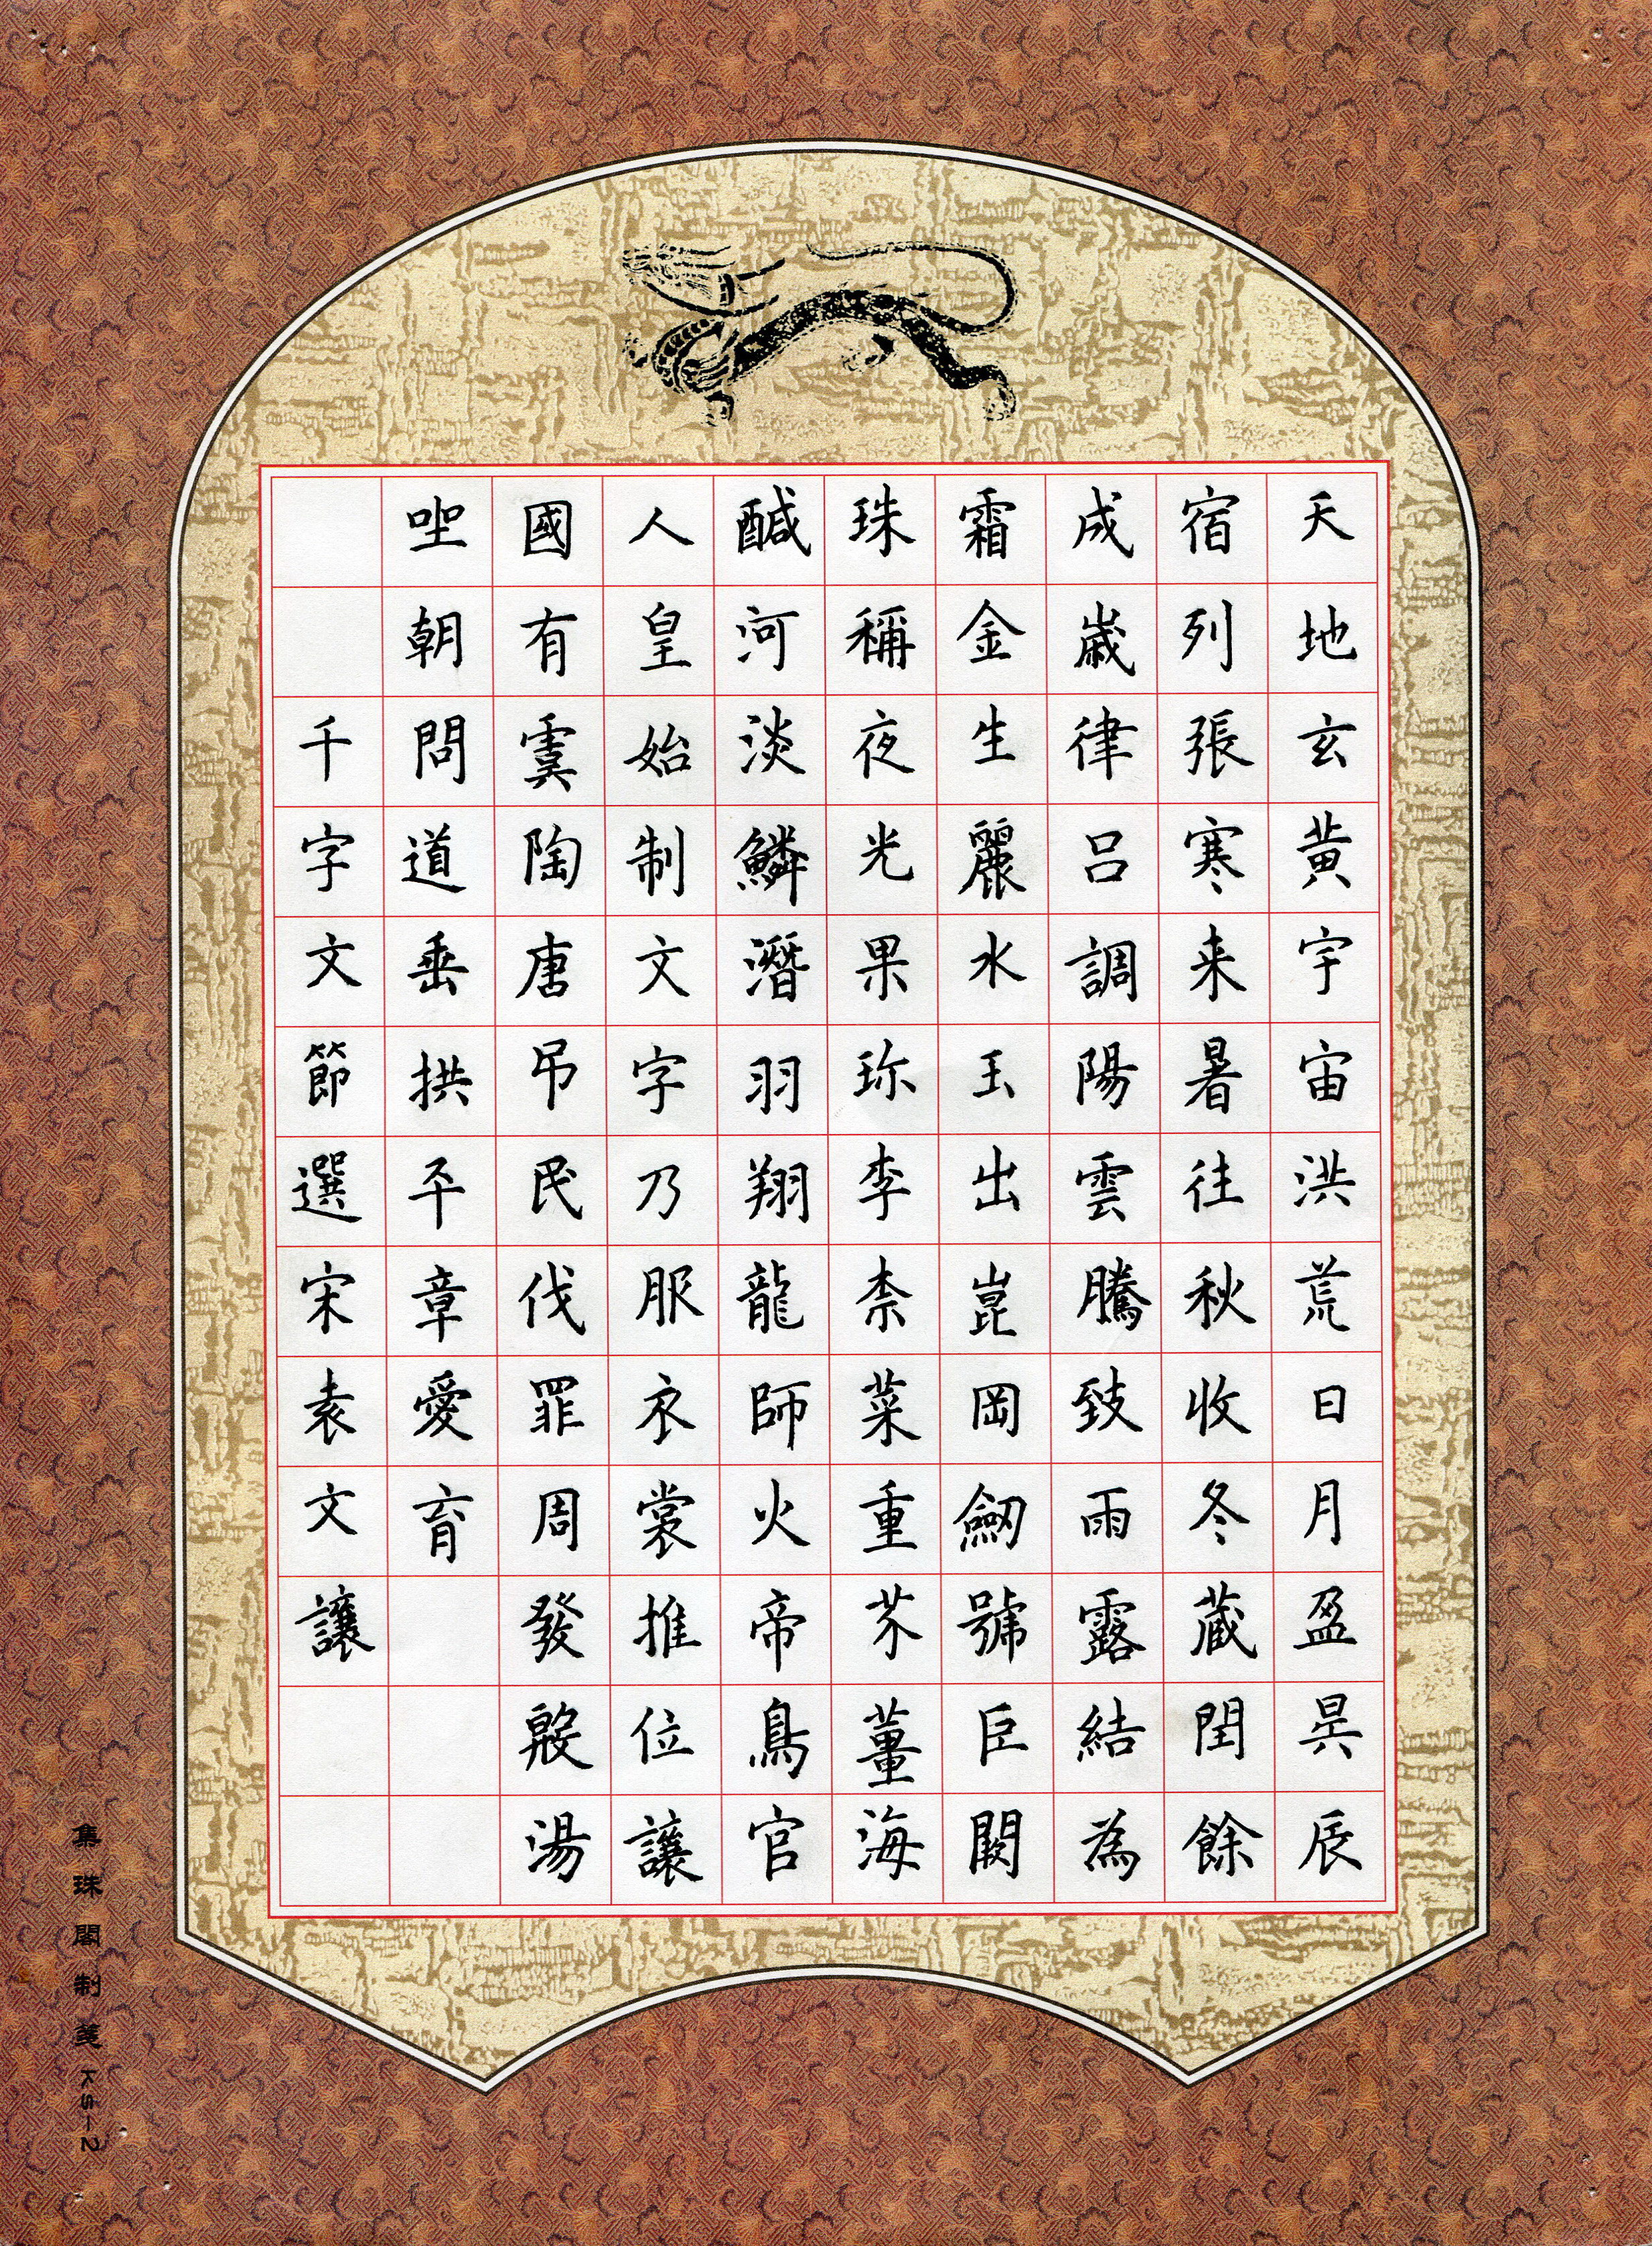 天地玄黃宇宙洪荒日月盈昃辰
宿列張寒来暑往秋收冬蔵閏餘
成歲律呂調陽雲騰致雨露結為
霜金生麗水玉出崑岡劒號臣闕
珠稱夜光果珎李柰菜重芥薑海
醎河淡鱗潛羽翔龍師火帝鳥官
人皇始制文字乃服衣裳推位讓
國有虞陶唐弔民伐罪周發殷湯
坐朝問道垂拱平章愛育
千字文節選宋袁文讓
集珠閣制箋KS-2